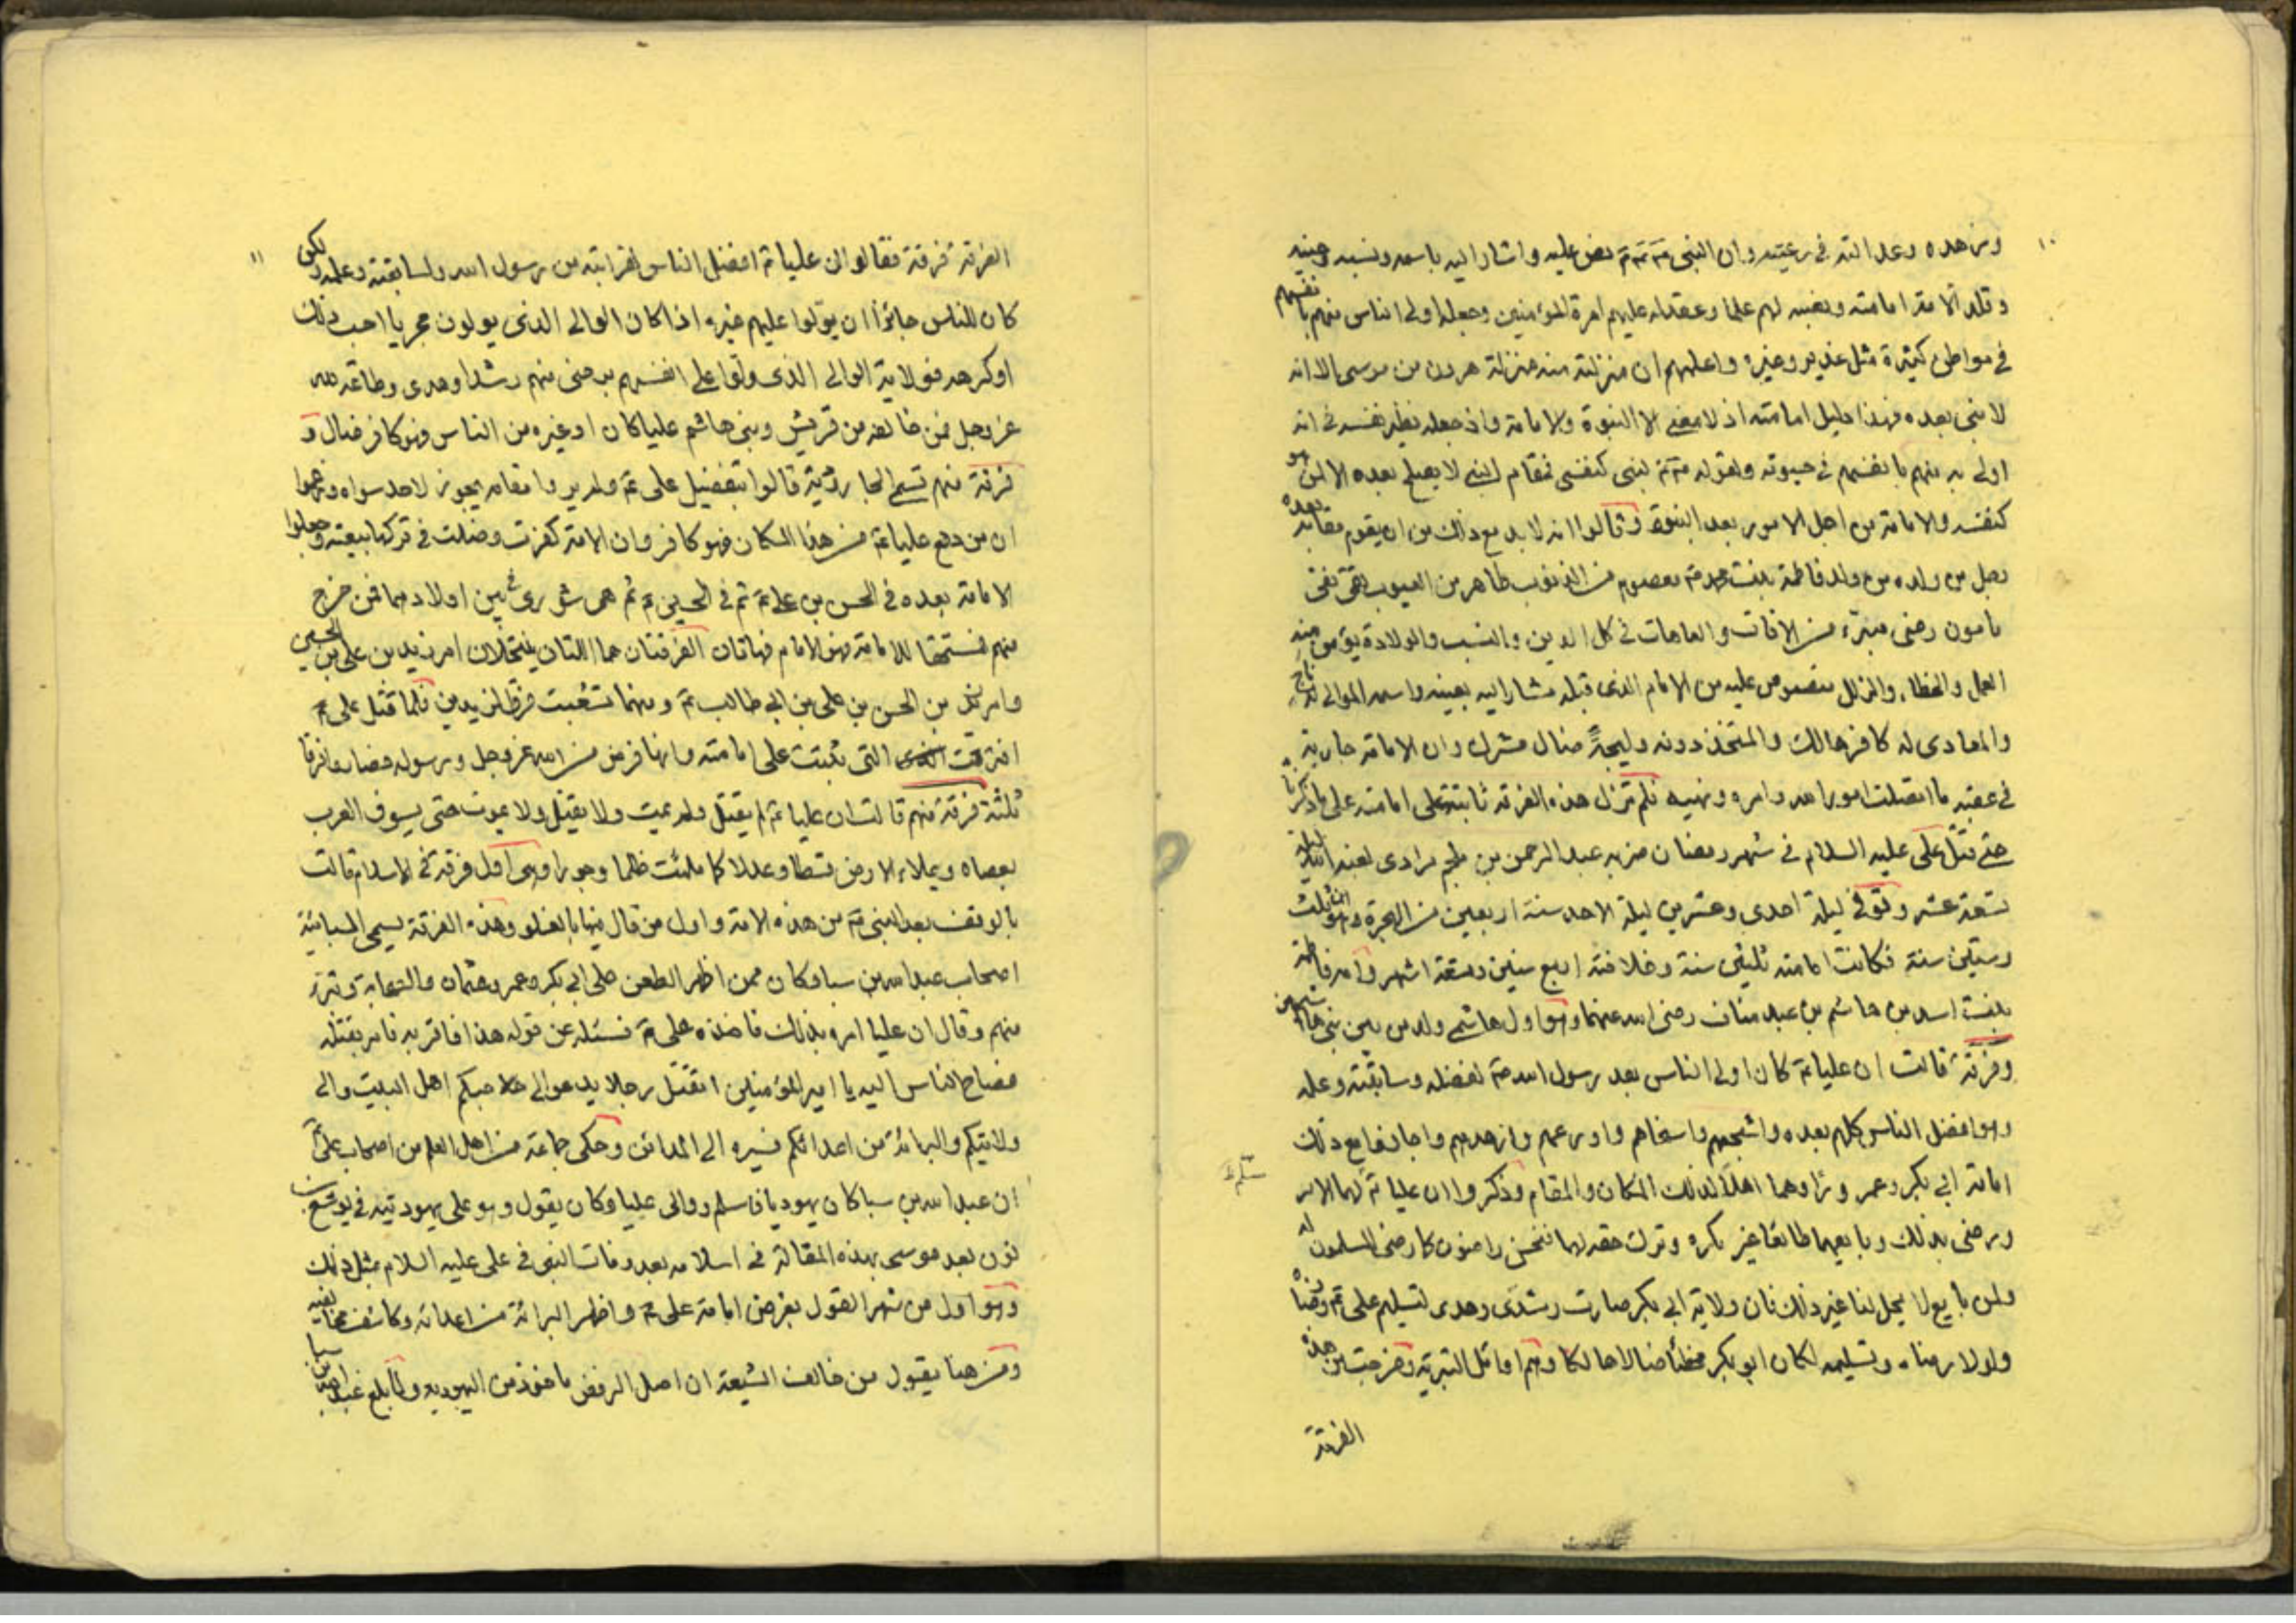 ١٠
وزهده وعدالته في رعيته وان النبي صَ نص عليه واشار اليه باسمه ونسبه وعينه
وقلد الامة امامته ونصبه لهم علما وعقد له عليهم امرة المؤمنين وجعله اولى الناس منهم بانفسهم
في مواطن كثيرة مثل غدير وغيره واعلمهم ان منزلته منه منزلة هرون من موسى الا انه
لا نبي بعده فهذا دليل امامته اذ لا معنى الا النبوة والامامة واذ جعله نظير نفسه في انه
اولى به منهم بانفسهم في حيوته ولقوله صَ لبني كنفسي فمقام النبي لا يصلح بعده الا لمن هو
كنفسه والامامة من اجل الامور بعد النبوة وقالوا انه لابد مع ذلك من ان يقوم مقامه بعده
رجل من ولده من ولد فاطمة بنت محمد صَ معصوم من الذنوب طاهر من العيوب تقي نقي
مامون رضي مبرّء من الافات والعاهات في كل الدين والنسب والولادة يؤمن منه
العمل والخطاء والزلل منصوص عليه من الامام الذي قبله مشار اليه بعينه واسمه الموالي له ناج
والمعادى له كافر هالك والمتخذ دونه وليجةً ضال مشرك وان الامامة جارية
في عقبه ما اتصلت امور الله وامره ونهيه فلم تزل هذه الفرقة ثابتة على امامته على ما ذكرنا
حتى قتل علي عليه السلام في شهر رمضان ضربه عبد الرحمن بن ملجم مرادى لعنه الله ليلة
تسعة عشر وتوفي ليلة احدى وعشرين ليلة الاحد سنة اربعين من الهجرة وهو ابن ثلث
وستين سنة فكانت امامته ثلثين سنة وخلافته اربع سنين وتسعة اشهر وامه فاطمة
بنت اسد بن هاشم بن عبد مناف رضى الله عنهما وهو اول هاشمي ولد من بين بني هاشمين
وفرقة قالت ان عليا عَ كان اولى الناس بعد رسول الله صَ لفضله وسابقته وعلمه
وهو افضل الناس كلهم بعده واشجعهم واسخاهم واورعهم وازهدهم واجازوا مع ذلك
امامة ابي بكر وعمر وراوهما اهلاً لذلك المكان والمقام وذكروا ان عليا عَ لهما الامر
ورضى بذلك وبايعهما طائعا غير مكره وترك حقه لهما فنحن راضون كما رضى المسلمون له
ولمن بايع لا يحل لنا غير ذلك فان ولاية ابي بكر صارت رشدى وهدى لتسليم علي عَ ورضاه
ولولا رضاه وتسليمه لكان ابو بكر مخطأ ضالا هالكا وهم اوائل البترية وخرجت من هذه
الفرقة
١١
الفرقة فرقة فقالوا ان عليا عَ افضل الناس لقرابته من رسول الله ولسابقته وعلمه ولكن
كان للناس جائزا ان يولوا عليهم غيره اذا كان الوالي الذي يولون مجريا احب ذلك
او كرهه فولاية الوالي الذي ولّوا على انفسهم برضى منهم رشد وهدى وطاعة لله
عز وجل فمن خالفه من قريش وبني هاشم عليا كان او غيره من الناس فهو كافر ضال و
فرقة منهم تسمى الجارودية قالوا بتفضيل علي عَ ولم يروا مقامه يجوز لاحد سواه وزعموا
ان من دفع عليا عَ من هذا المكان فهو كافر وان الامة كفرت وضلت في تركها بيعته وجعلوا
الامامة بعده في الحسن بن علي عَ ثم في الحسين عَ ثم هي شورى بين اولادهما فمن خرج
منهم فستحقا للامامة فهو الامام فهاتان الفرقتان هما اللتان ينتحلان امر زيد بن علي بن الحسين
وامر زيد بن الحسن بن علي بن ابي طالب عَ ومنهما تشعبت فرق الزيديين فلما قتل علي عَ
افترقت التي ثبتت على امامته وانها فرض من الله عز وجل ورسوله فصاروا فرقا
ثلثة فرقة منهم قالت ان عليا عَ لم يقتل ولم يمت ولا يقتل ولا يموت حتى يسوق العرب
بعصاه ويملاء الارض قسطا وعدلا كما ملئت ظلما وجورا وهي اول فرقة في الاسلام قالت
بالوقف بعد النبي صَ من هذه الامة واول من قال منها بالغلو وهذه الفرقة يسمى السبائية
اصحاب عبد الله بن سبا وكان ممن اظهر الطعن على ابي بكر وعمر وعثمان والصحابة وتبرء
منهم وقال ان عليا امره بذلك فاخذه علي عَ فسئله عن قوله هذا فاقر به فامر بقتله
فصاح الناس اليه يا امير المؤمنين اتقتل رجلا يدعو الى حبكم اهل البيت والى
ولايتكم والبرائة من اعدائكم فسيره الى المدائن وحكى جماعة من اهل العلم من اصحاب علي عَ
ان عبد الله بن سبا كان يهوديا فاسلم ووالى عليا وكان يقول وهو على يهوديته في يوشع بن
نون بعد موسى بهذه المقالة في اسلامه بعد وفات النبي في علي عليه السلام بمثل ذلك
وهو اول من شهر القول بفرض امامة علي عَ واظهر البرائة من اعدائه وكاشف مخالفيه
ومن هنا يقول من خالف الشيعة ان اصل الرفض ماخوذ من اليهوديه ولما بلغ عبد الله بن سبا